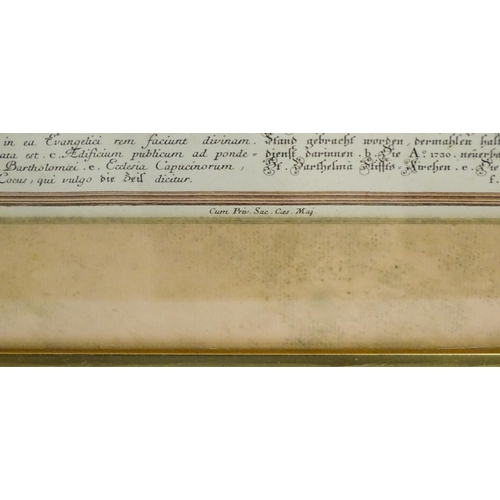 in ea Evangelici rem faciunt divinam.
ata est. c. Ædificium publicum ad ponde-
Bartholomæi. e. Ecclesia Capucinorum,
Locus, qui vulgo die Zeil dicitur.
Stand gebracht worden, dermahlen halt
dienst darinnen. b. Die A.º 1730. neüerba
S. Barthelmä Stiffts-Kirchen. e. Die
f.
Cum Priv. Sac. Cæs. Maj.